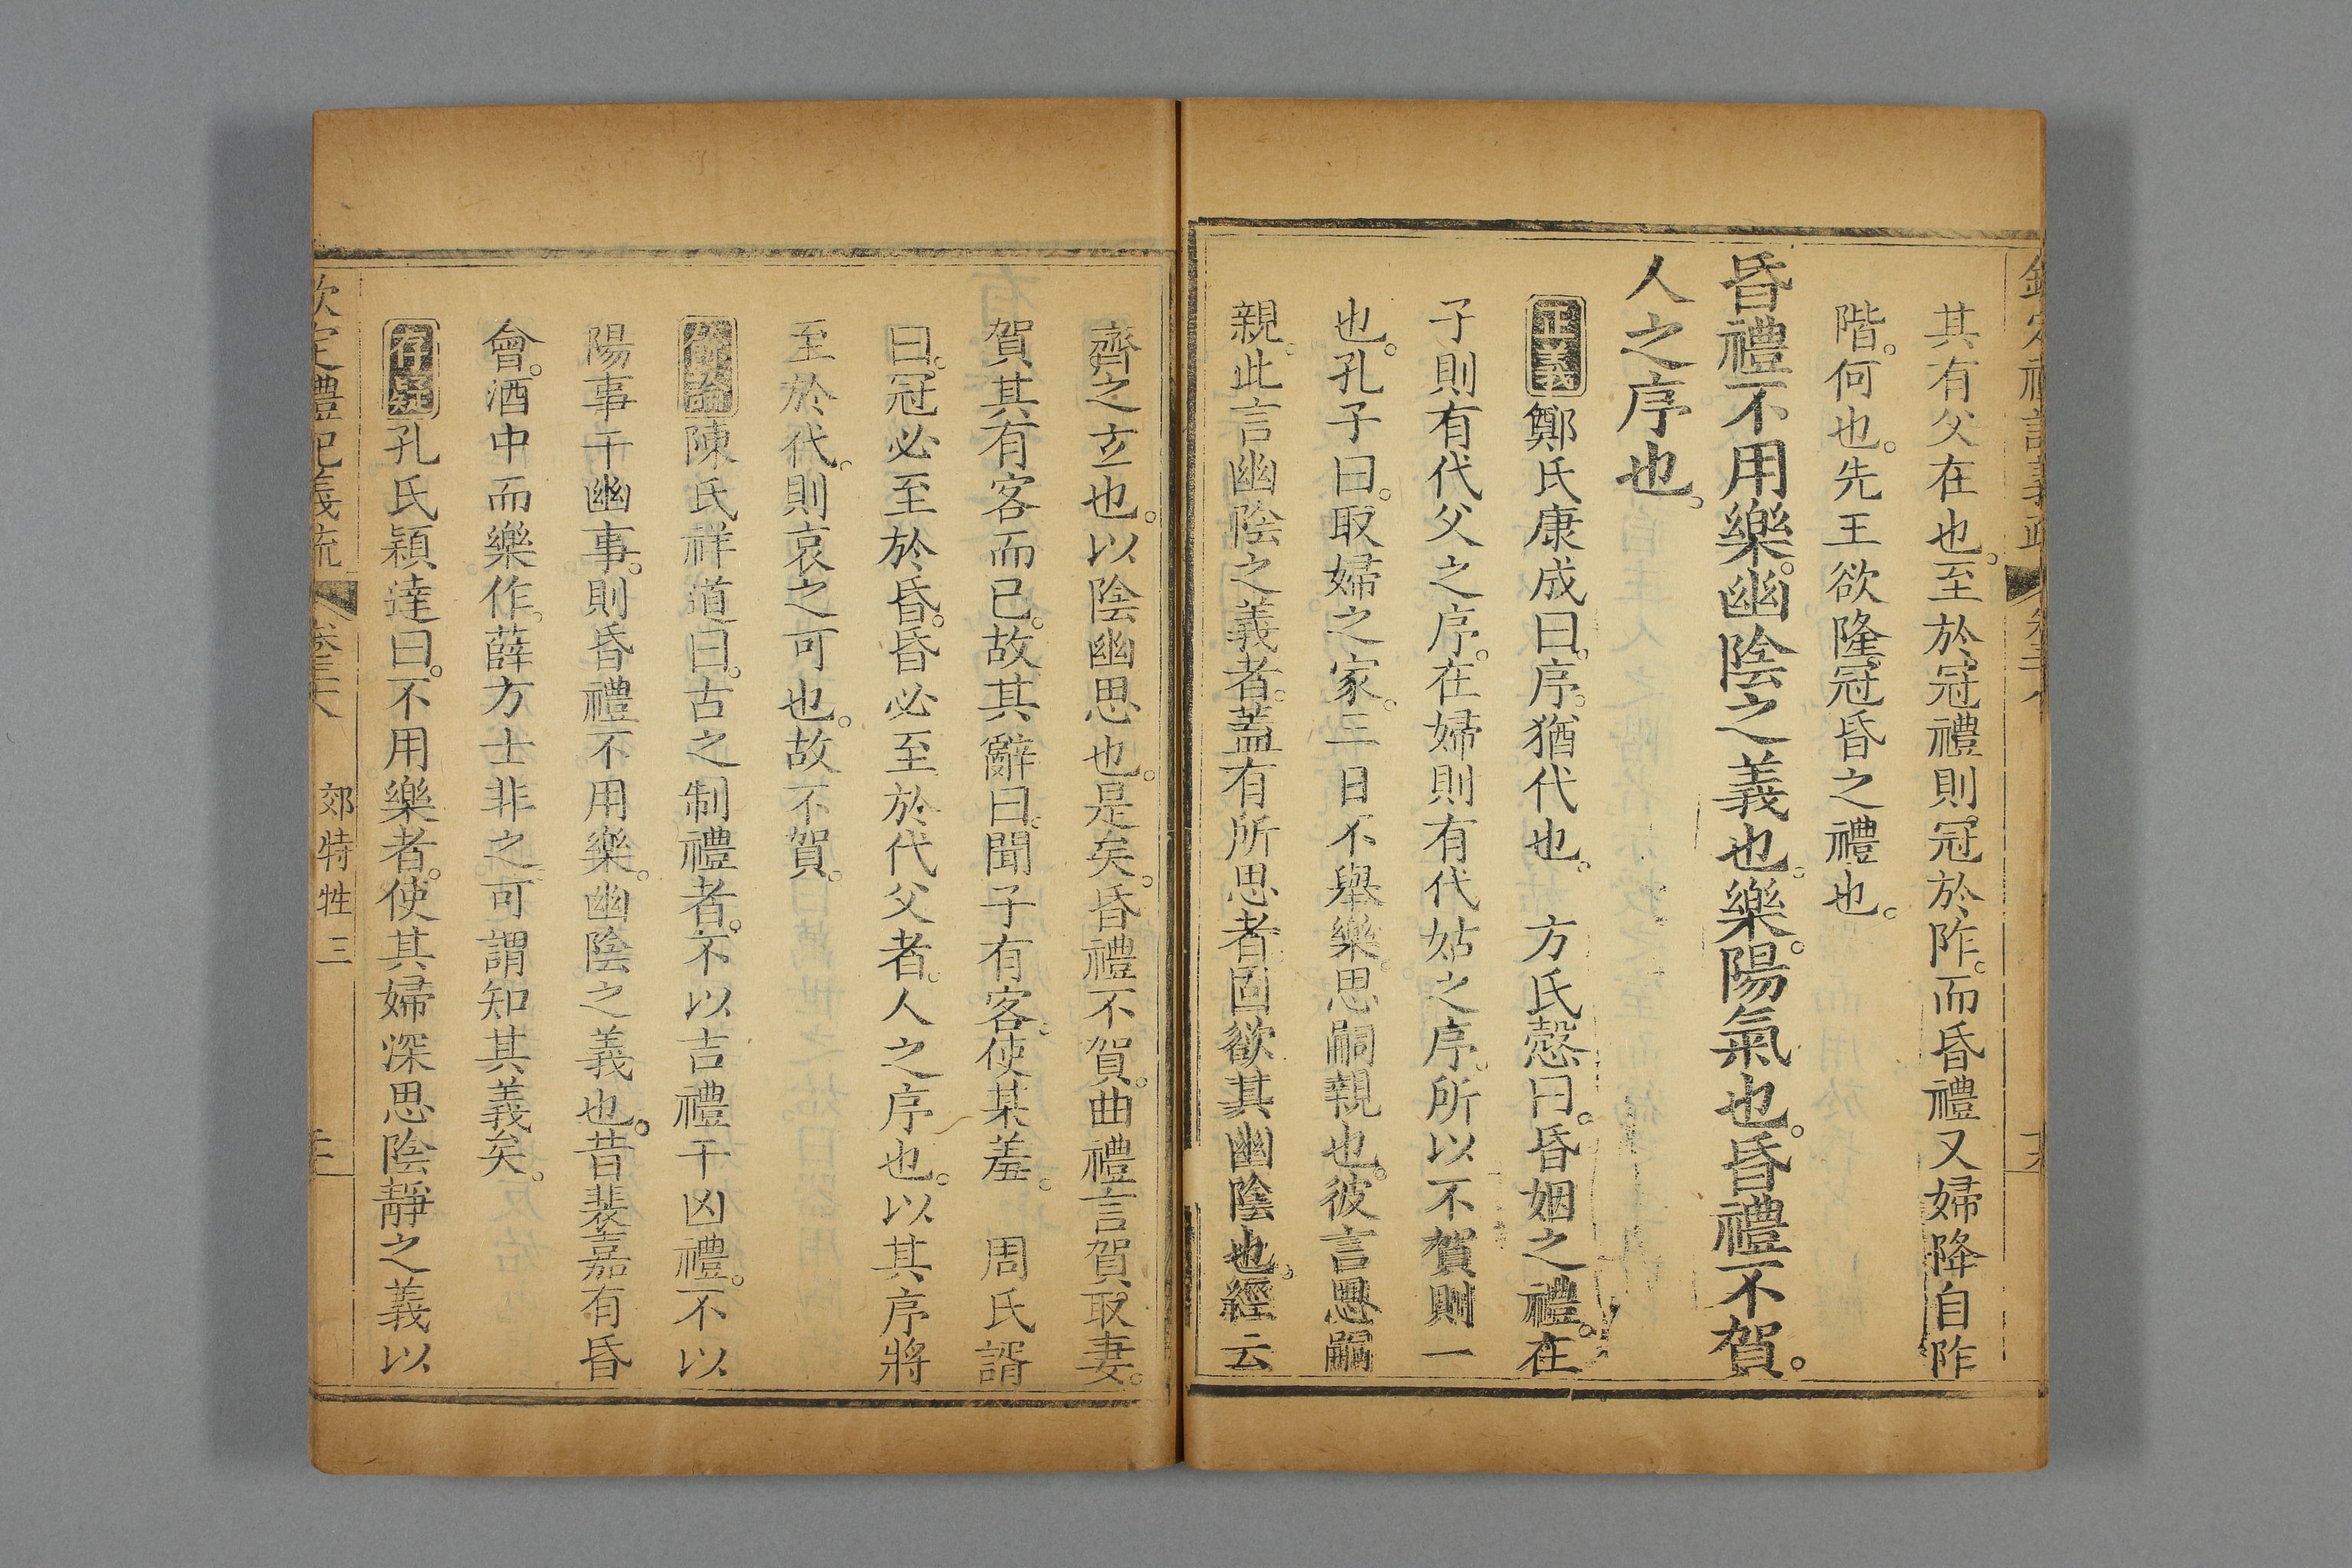 其有父在也。至於冠禮則冠於阼。而昏禮又婦降自阼
階。何也。先王欲隆冠昏之禮也。
昏禮不用樂。幽陰之義也。樂。陽氣也。昏禮不賀。
人之序也。
正義鄭氏康成曰。序。猶代也。 方氏慤曰。昏姻之禮。在
子則有代父之序。在婦則有代姑之序。所以不賀則一
也。孔子曰。取婦之家。三日不舉樂。思嗣親也。彼言思嗣
親。此言幽陰之義者。蓋有所思者。固欲其幽陰也。經云
齊之玄也。以陰幽思也。是矣。昏禮不賀。曲禮言賀取妻。
賀其有客而已。故其辭曰。聞子有客。使某羞。 周氏諝
曰。冠必至於昏。昏必至於代父者。人之序也。以其序將
至於代。則哀之可也。故不賀。
餘論陳氏祥道曰。古之制禮者。不以吉禮干凶禮。不以
陽事干幽事。則昏禮不用樂。幽陰之義也。昔裴嘉有昏
會。酒中而樂作。薛方士非之。可謂知其義矣。
存疑孔氏穎達曰。不用樂者。使其婦深思陰靜之義以
欽定禮記義疏 卷三十八 郊特牲三